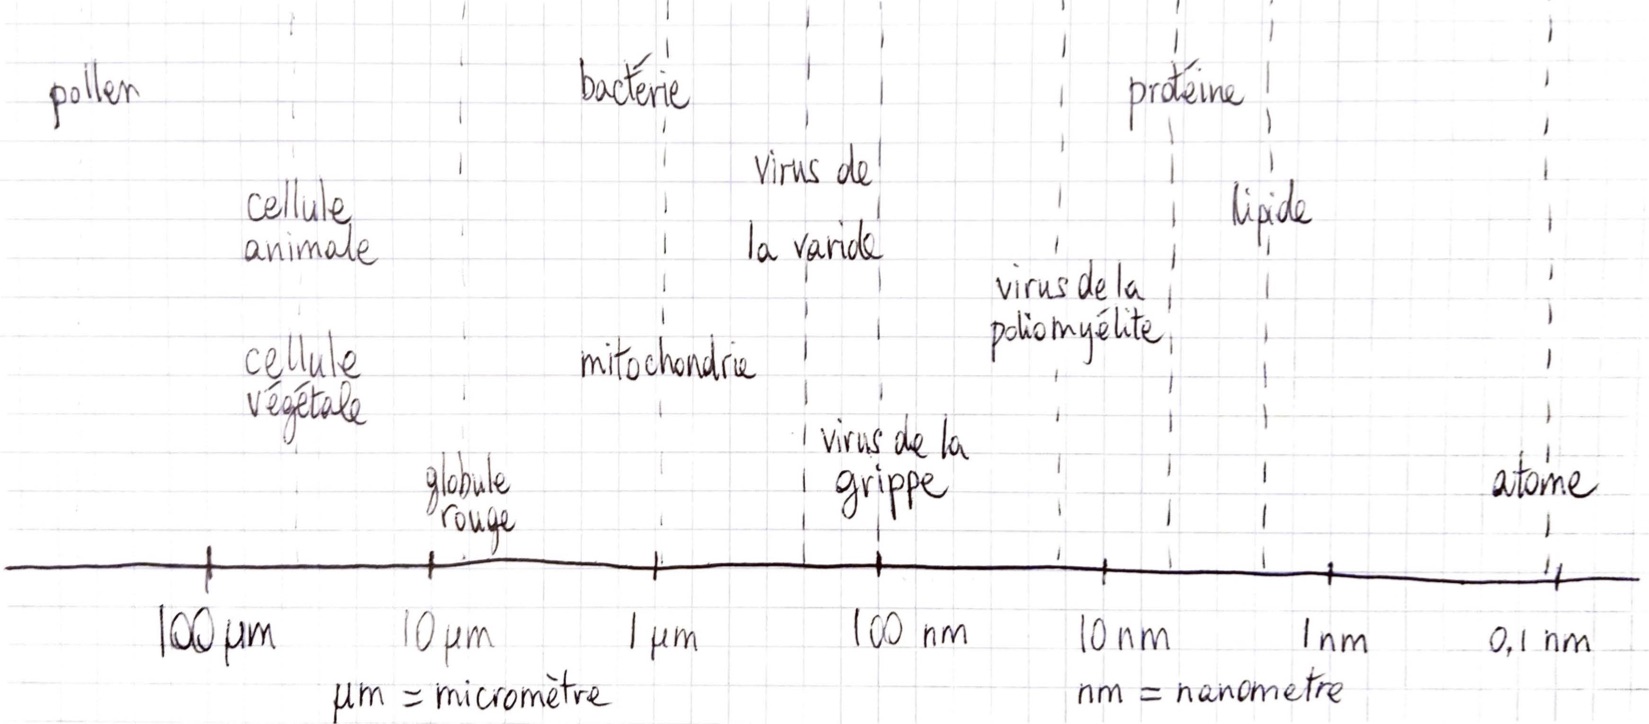 pollen
bactérie
protéine
virus de
la variole
cellule
animale
lipide
virus de la
poliomyélite
cellule
végétale
mitochondrie
virus de la
grippe
globule
rouge
atome
100 µm 10 µm 1 µm 100 nm 10 nm 1 nm 0,1 nm
µm = micromètre nm = nanometre